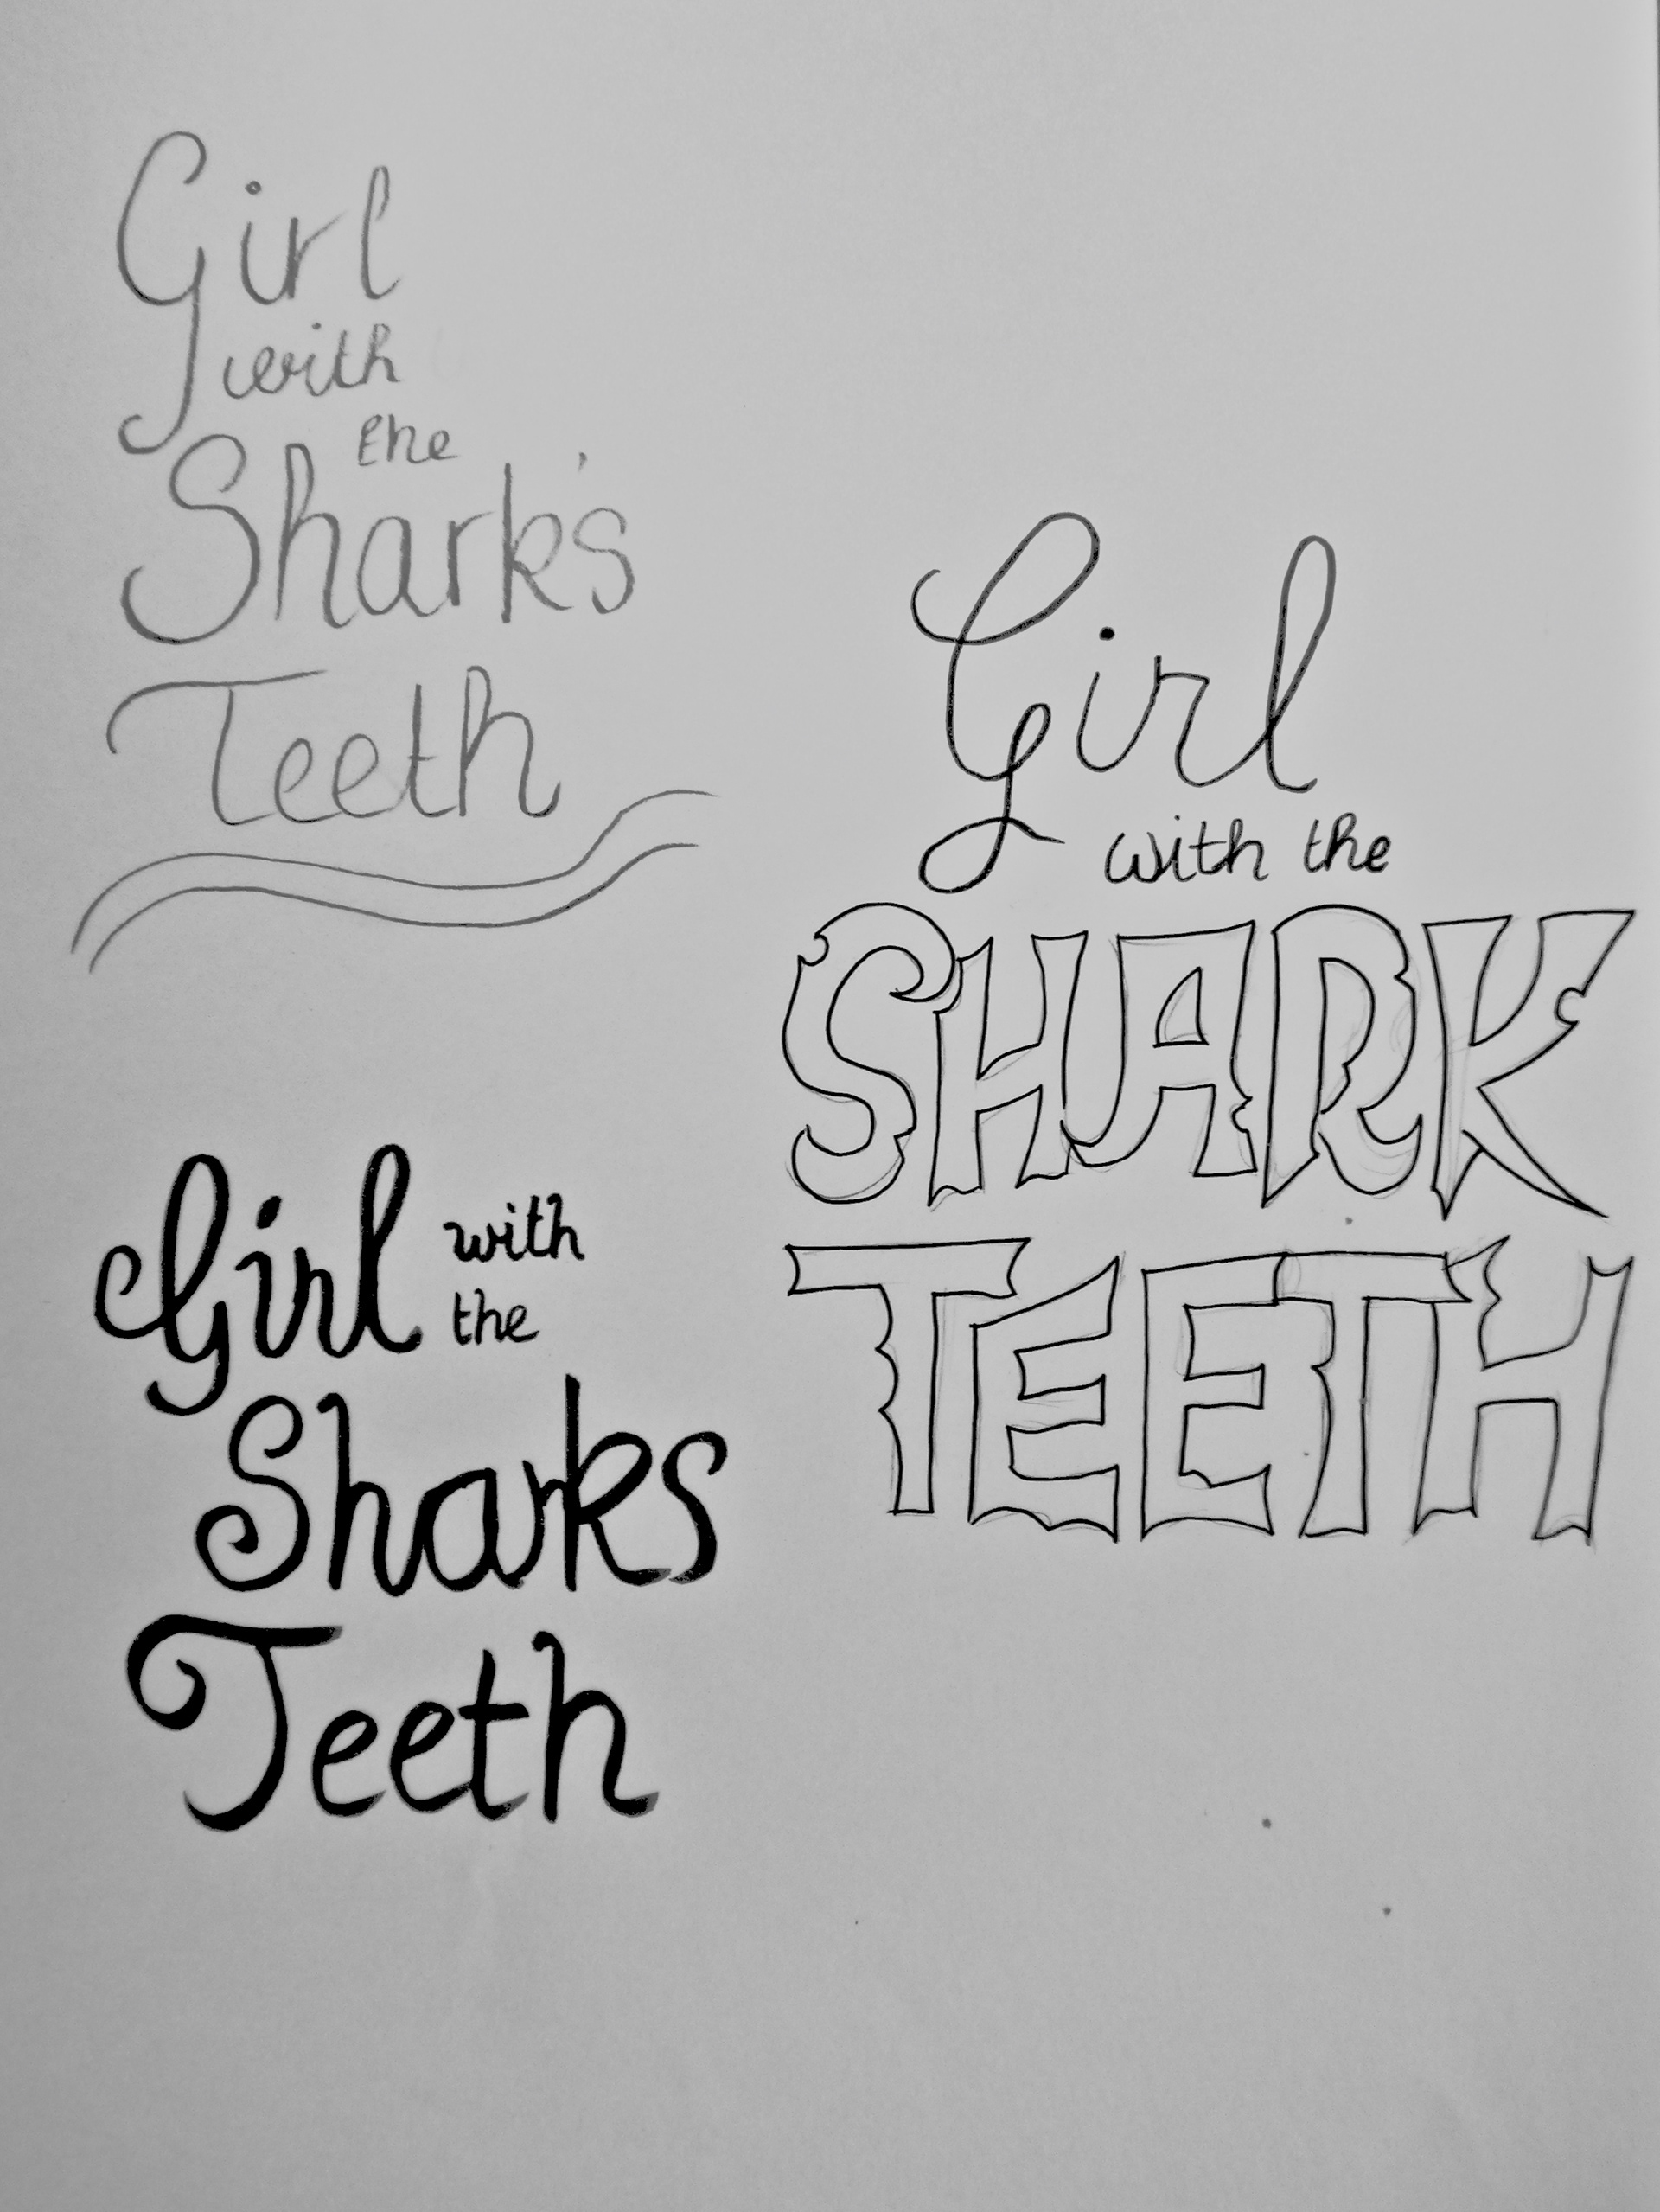 Girl
with
the
Shark's
Teeth
Girl
with the
SHARK
TEETH
Girl with
the
Sharks
Teeth